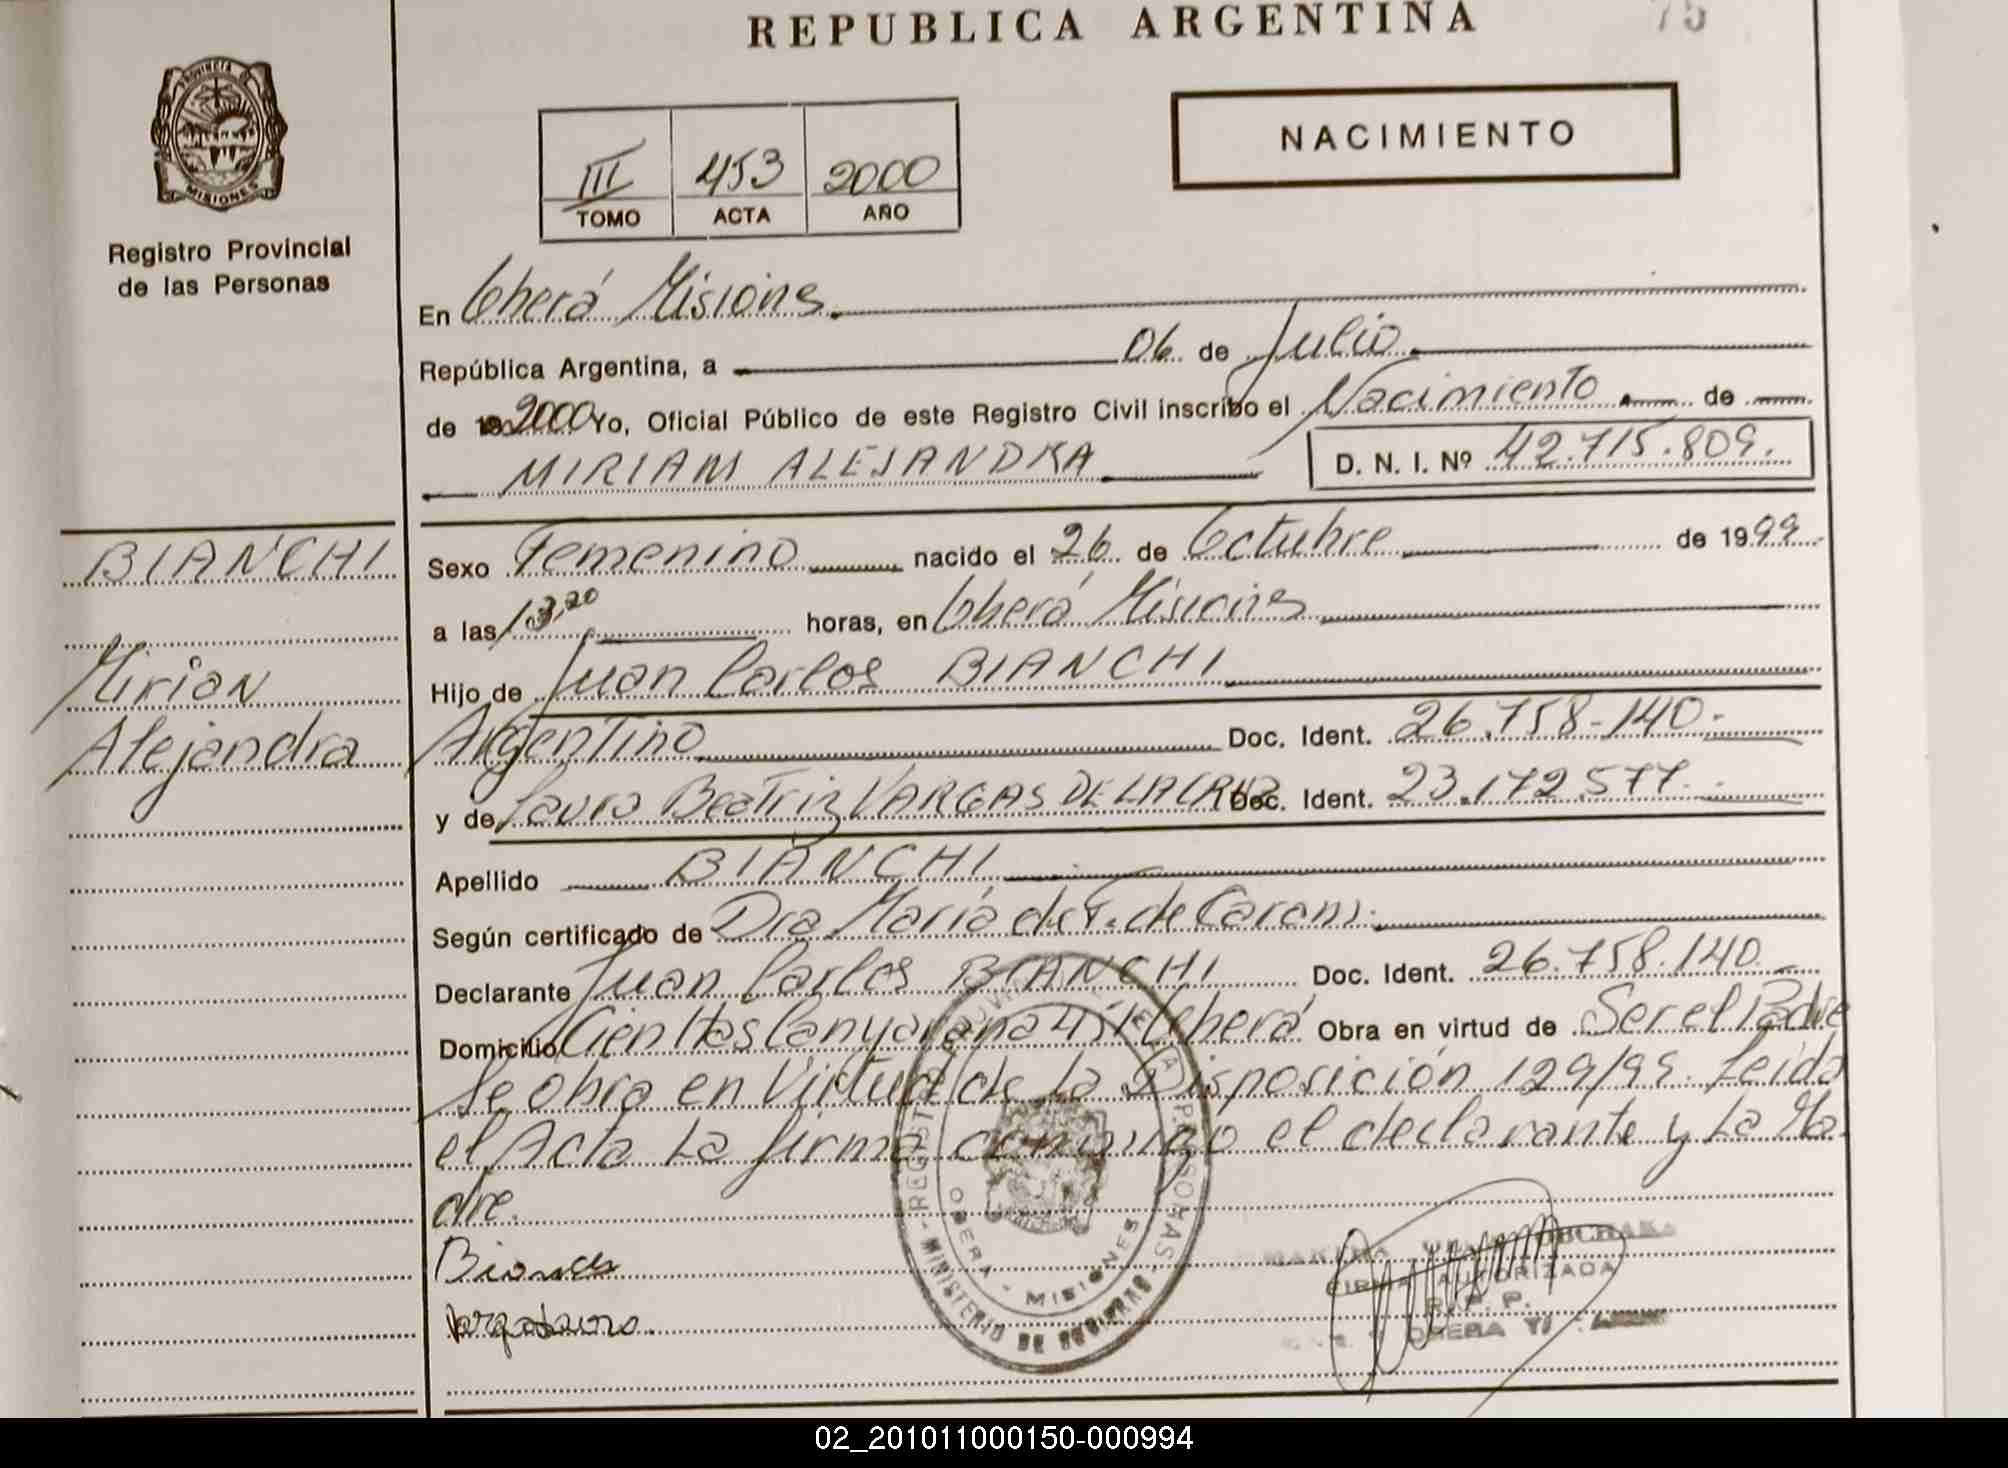 REPUBLICA ARGENTINA
75
PROVINCIA DE
MISIONES
Registro Provincial
de las Personas
III 453 2000
TOMO ACTA AÑO
NACIMIENTO
En Oberá Misiones.
República Argentina, a 06 de Julio
de 19 2000 Yo, Oficial Público de este Registro Civil inscribo el Nacimiento de
MIRIAM ALEJANDRA D. N. I. Nº 42.715.809.
BIANCHI
Mirian
Alejandra
Sexo Femenino nacido el 26 de Octubre de 1999
a las 13,20 horas, en Oberá Misiones
Hijo de Juan Carlos BIANCHI
Argentino Doc. Ident. 26.758.140.
y de Laura Beatriz VARGAS DE LA CRUZ Doc. Ident. 23.172.577.
Apellido BIANCHI
Según certificado de Dra María de F. de
Declarante Juan Carlos BIANCHI Doc. Ident. 26.758.140
Domicilio Cien Has Oberá Obra en virtud de Ser el Padre
Se obra en Virtud de La Disposición 129/99. Leida
el Acta La firma conmigo el declarante y La Ma
dre.
REGISTRO PERSONAS
OBERA - MISIONES
MINISTERIO DE GOBIERNO
FIRMA AUTORIZADA
R. P. P.
OBERA
02_201011000150-000994